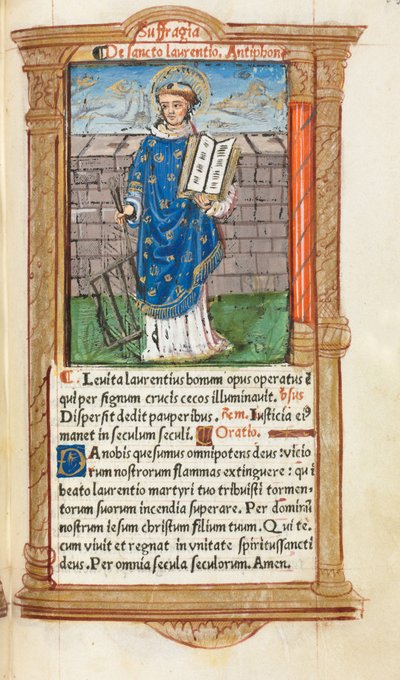 Suffragia
De sancto laurentio. Antiphon
Levita laurentius bonum opus operatus ē
qui per signum crucis cecos illuminavit. v̄sus
Dispersit dedit pauperibus. R̄em. Iusticia eiꝰ
manet in seculum seculi. Oratio.
DA nobis quesumus omnipotens deus: vicio
rum nostrorum flammas extinguere: qui
beato laurentio martyri tuo tribuisti tormen-
torum suorum incendia superare. Per dominū
nostrum iesum christum filium tuum. Qui te-
cum vivit et regnat in vnitate spiritussancti
deus. Per omnia secula seculorum. Amen.